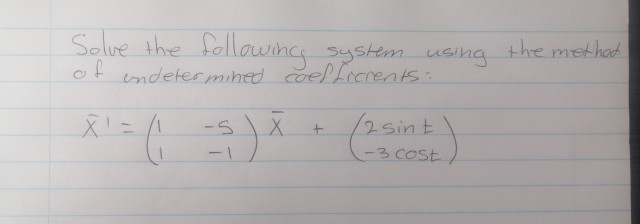 Solve the following system using the method
of undetermined coefficients:
X̄' = (1 -5) X̄ + (2 sin t)
(1 -1) (-3 cos t)